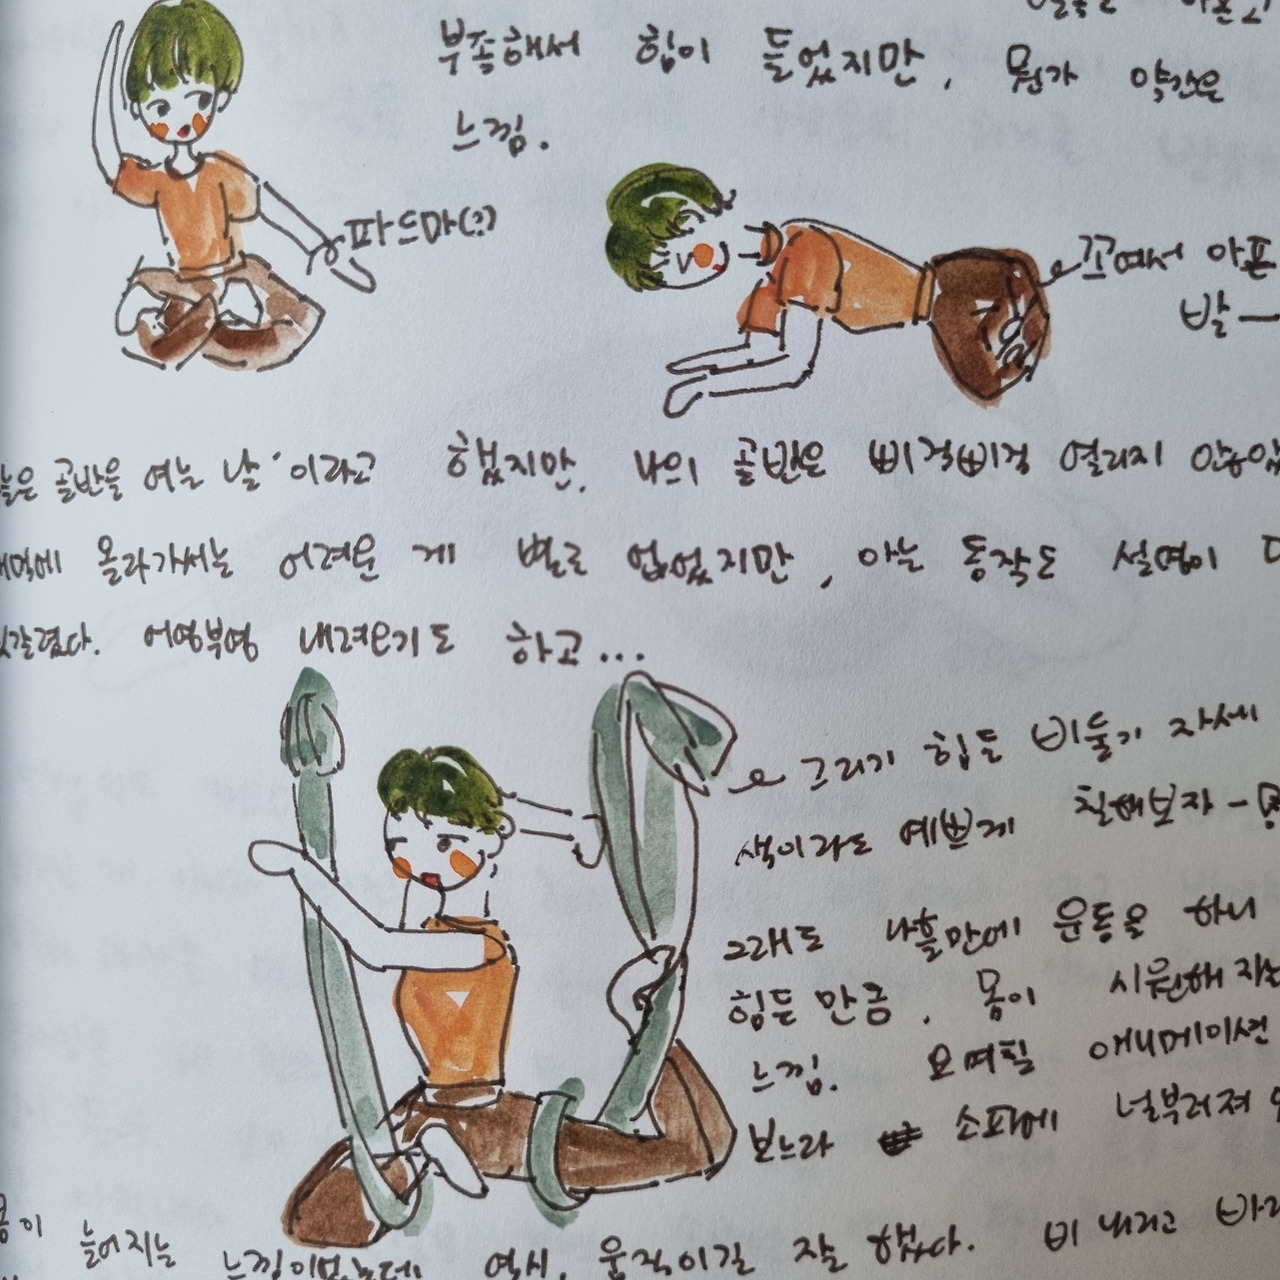 부족해서 힘이 들었지만, 뭔가 약간은
느낌.
파드마(?)
꼬여서 아픈
발—
늘은 골반을 여는 날'이라고 했지만, 나의 골반은 삐걱삐걱 열리지 않았
해먹에 올라가서는 어려운 게 별로 없었지만, 아는 동작도 설명이
갈렸다. 어영부영 내려오기도 하고...
그리기 힘든 비둘기 자세
색이라도 예쁘게 칠해보자-
그래도 나흘만에 운동을 하니
힘든 만큼, 몸이 시원해지는
느낌. 요며칠 애니메이션
보느라 소파에 널부러져
몸이 늘어지는 느낌이었는데 역시, 움직이길 잘 했다. 비 내리고